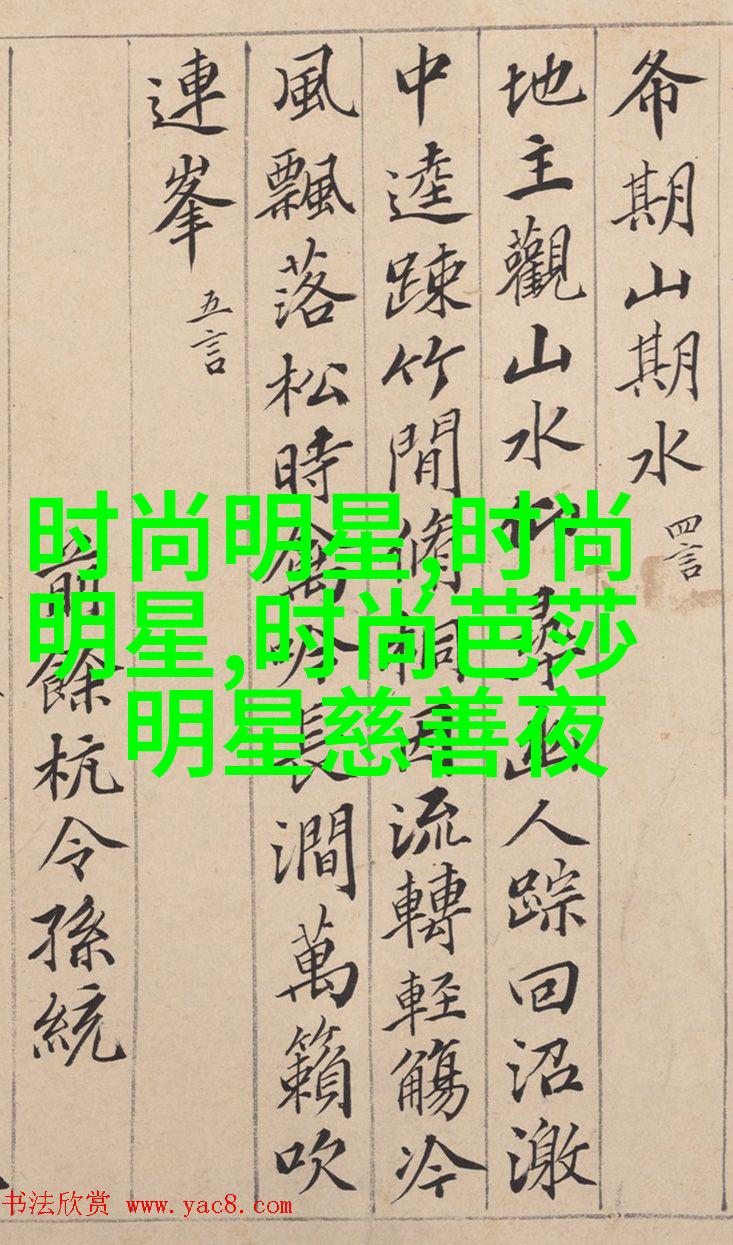 希期山期水 四言
地主觀山水仰尋幽人踪回沼激
中逵踈竹間脩桐因流轉軽觴冷
風飄落松時禽吟長澗萬籟吹
連峯 五言
前餘杭令孫統
时尚明星,时尚
明星,时尚芭莎
明星慈善夜
书法欣赏 www.yac8.com